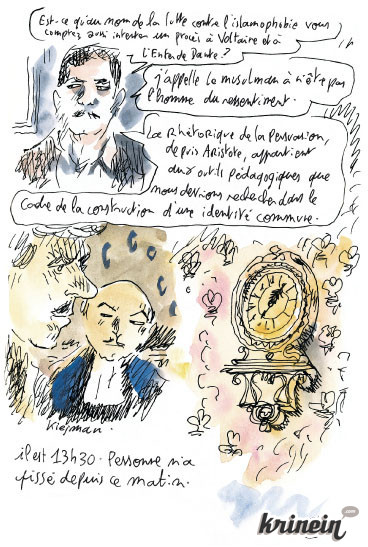 Est-ce qu'au nom de la lutte contre l'islamophobie vous
comptez aussi intenter un procès à Voltaire et à
l'Enfer de Dante ?
j'appelle le musulman à n'être pas
l'homme du ressentiment.
La Rhétorique de la Persuasion,
depuis Aristote, appartient
aux outils pédagogiques que
nous devrions rechercher dans le
Cadre de la construction d'une identité commune.
Kiejman.
il est 13h30. Personne n'a
pissé depuis ce matin.
krinein